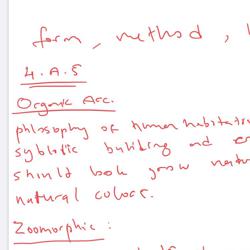 form, method,
4.A.5
Organic Arc.
phlosophy of human habitatio
sybiotic building and en
should look grow natu
natural colour.
Zoomorphic :